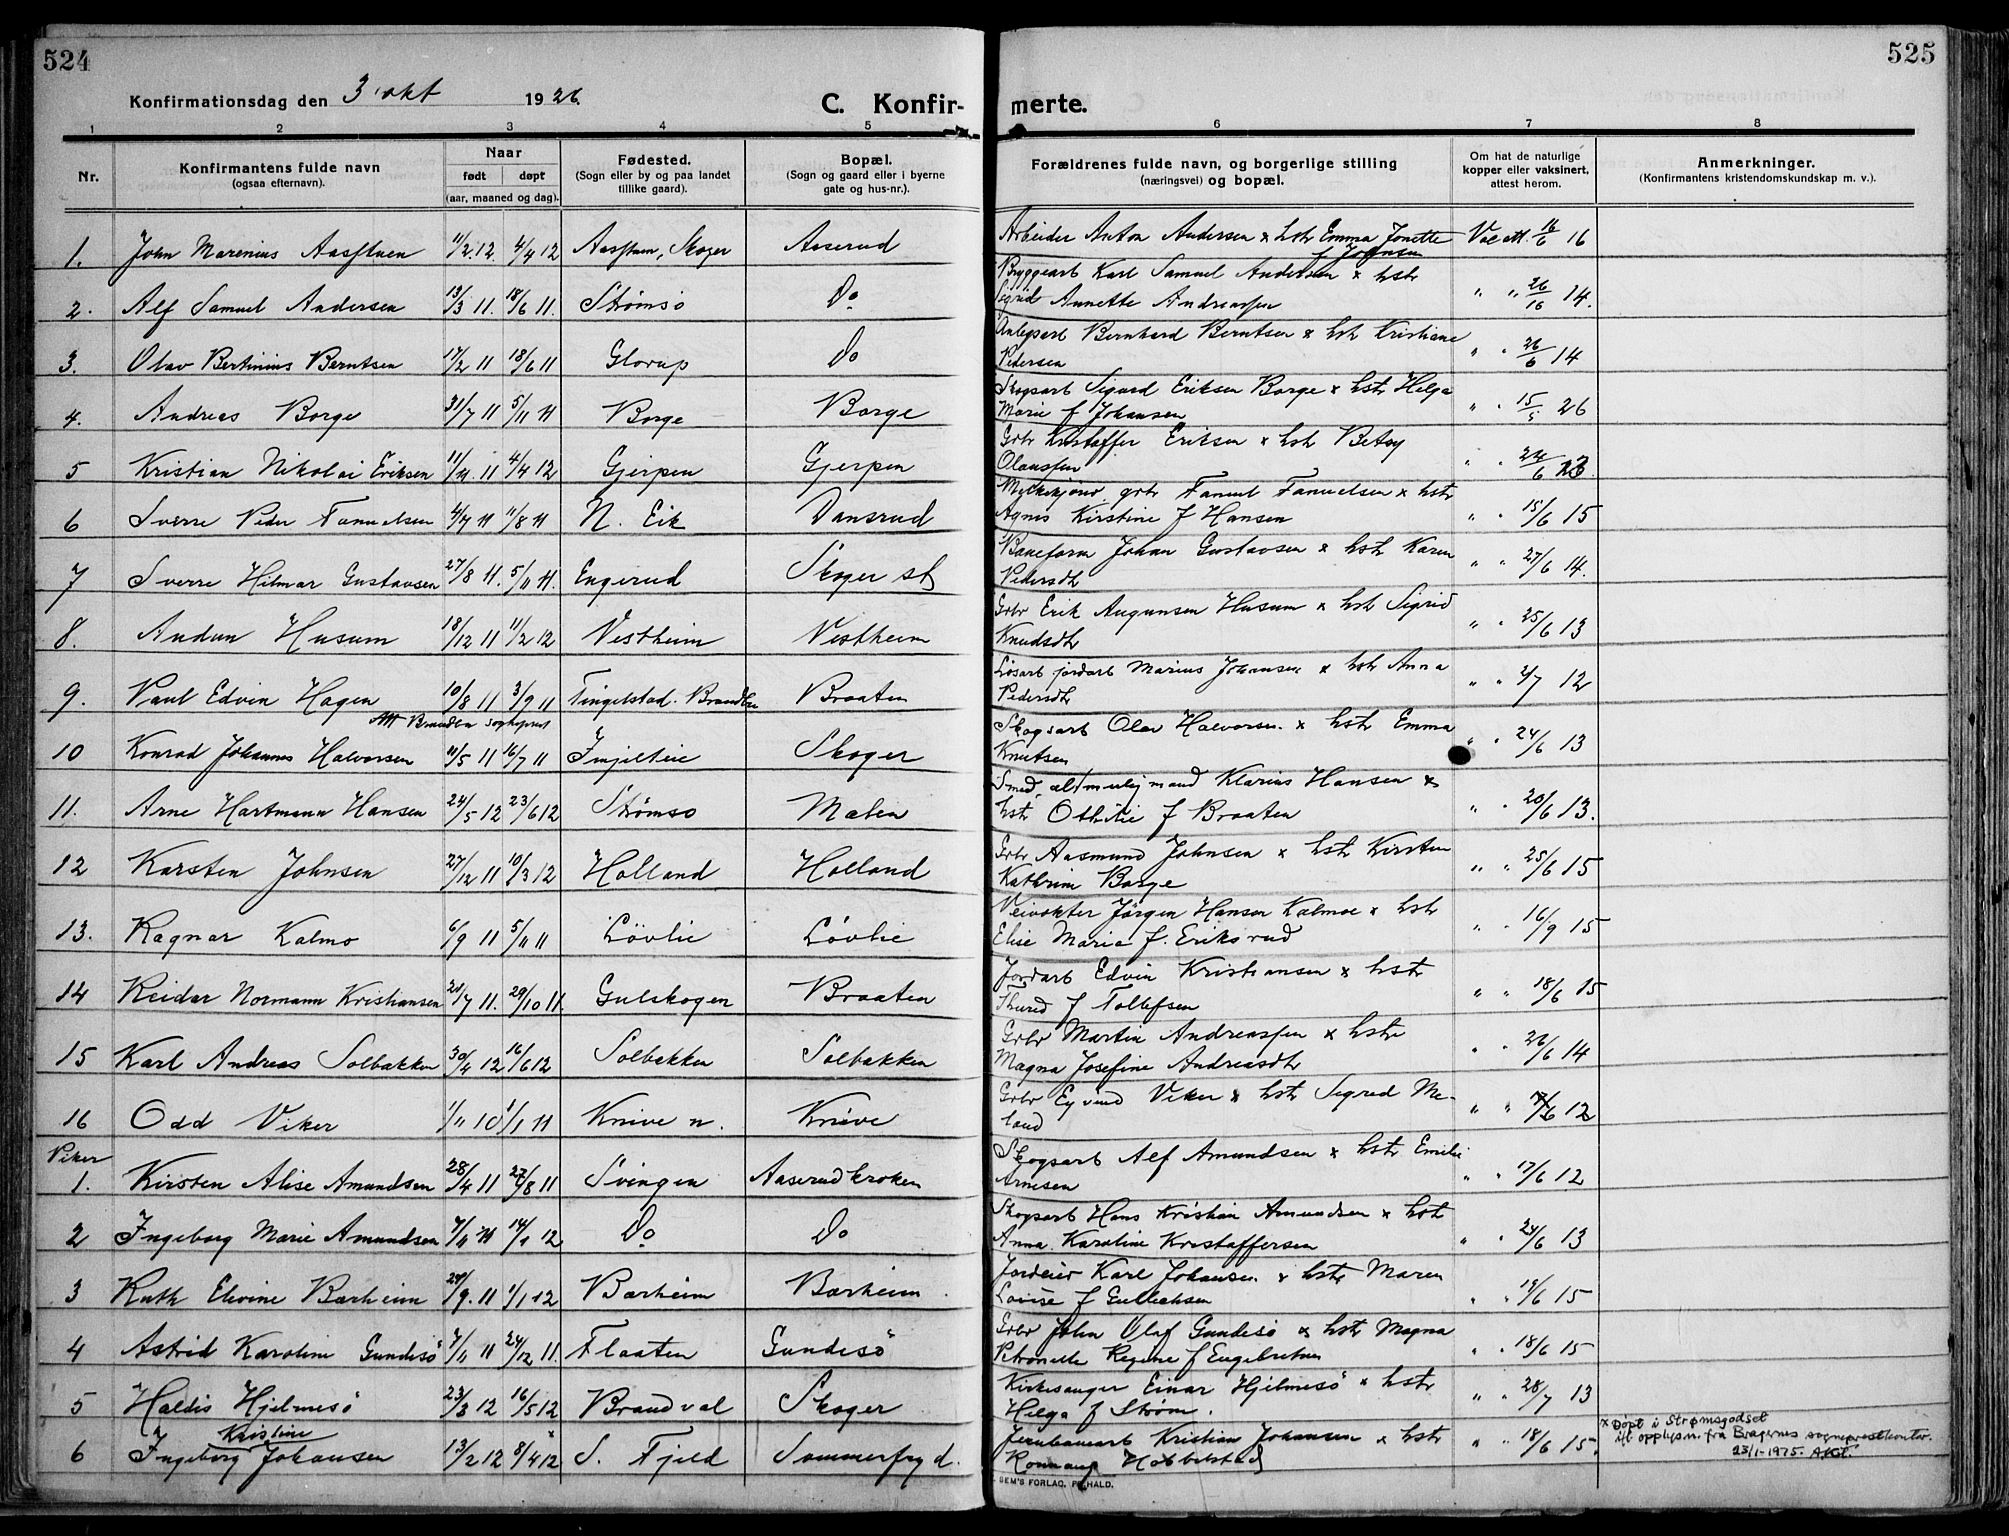 524
525
Konfirmationsdag den 3 okt 1926.
C. Konfir-merte.
1 2 3 4 5 6 7 8
Nr.
Konfirmantens fulde navn
(ogsaa efternavn).
Naar
født døpt
(aar, maaned og dag).
Fødested.
(Sogn eller by og paa landet
tillike gaard).
Bopæl.
(Sogn og gaard eller i byerne
gate og hus-nr.).
Forældrenes fulde navn, og borgerlige stilling
(næringsvei) og bopæl.
Om hat de naturlige
kopper eller vaksinert,
attest herom.
Anmerkninger.
(Konfirmantens kristendomskundskap m. v.).
1. John Marenius Aasstuen 11/2.12. 4/4 12 Aasstuen, Skoger Aaserud Arbeider Anton Andersen x hstr Emma Jonette
f Johnsen Vac att. 16/6 16
2. Alf Samuel Andersen 13/3 11. 18/6 11. Strømsø Do Bryggearb Karl Samuel Andersen x hstr
Sigrid Annette Andreassen " " 26/16 14.
3. Olav Bertinius Berntsen 17/2 11 18/6 11 Glorup Do Anlegsarb Bernhard Berntsen x hstr Kristiane
Pedersen " " 26/6 14
4. Andreas Borge 31/7 11 5/11 11 Borge Borge Skogsarb Sigurd Eriksen Borge x hstr Helga
Marie f Johansen " " 15/5 26
5 Kristian Nikolai Eriksen 11/11. 11 4/4 12 Gjerpen Gjerpen Grbr Kristoffer Eriksen x hstr Betsy
Olaussen " " 24/6 13.
6 Sverre Peder Fanuelsen 4/7 11 11/8 11 N. Eik Dansrud Melkekjører, grbr Fanuel Fanuelsen x hstr
Agnes Kirstine f Hansen " " 15/6 15
7 Sverre Hilmar Gustavsen 27/8 11. 5/11 11. Engerud Skoger st Baneform Johan Gustavsen x hstr Karen
Pedersdtr " " 27/6 14.
8. Audun Husum 18/12 11 11/2 12 Vestheim Vestheim Grbr Erik Augunsen Husum x hstr Sigrid
Knudsdtr " " 25/6 13
9. Paul Edvin Hagen 10/8 11 3/9 11 Tingelstad. Brandbu Braaten Løsarb jordarb Marius Johansen x hstr Anna
Pedersdtr " " 2/7 12
Att Brandbu sogneprest
10 Konrad Johannes Halvorsen 11/5 11 16/7 11 Skoger Skogsarb Olav Halvorsen x hstr Emma
Knutsen " " 24/6 13
11. Arne Hartmann Hansen 24/5 12 23/6 12 Strømsø Malen Smed, altmuligmand Klarius Hansen x
hstr Othilie f Braaten " " 20/6 13.
12 Karsten Johnsen 27/12 11 10/3 12 Holland Holland Grbr Aasmund Johnsen x hstr Kirsten
Kathrine Borge " " 25/6 15
13. Ragnar Kalmo 6/9 11 5/11 11 Løvlie Løvlie Veivokter Jørgen Hansen Kalmoe x hstr
Elise Marie f. Eriksrud " " 16/9 15
14 Reidar Normann Kristiansen 21/7 11. 29/10 11. Gulskogen Braaten Jordarb Edvin Kristiansen x hstr
Thured f Tollefsen " " 18/6 15
15 Karl Andreas Solbakken 30/4 12 16/6 12 Solbakken Solbakken Grbr Martin Andreassen x hstr
Magna Josefine Andreasdtr " " 26/6 14
16 Odd Viker 1/11 10 1/1 11 Knive n. Knive Grbr Eyvind Viker x hstr Sigrid Me-
land " " 12
Piker
1. Kirsten Alise Amundsen 28/4 11 27/8 11 Svingen Aaserudkroken Skogsarb Alf Amundsen x hstr Emilie
Arnesen " " 17/6 12
2 Ingeborg Marie Amundsen 7/11 11 14/1 12 Do Do Skogsarb Hans Kristian Amundsen x hstr
Anna Karoline Kristoffersen " " 24/6 13
3 Ruth Elvine Barheim 24/9. 11 1/1 12 Barheim Barheim. Jordeier Karl Johansen x hstr Maren
Lovise f Gulliksen " " 14/6 15
4 Astrid Karoline Gundesø 7/11 11 24/12 11. Flaaten Gundesø Grbr John Olaf Gundesø x hstr Magna
Petronelle Regine f Engebretsen " " 18/6 15
5 Haldis Hjelmesø 23/3 12 16/5 12 Brandval Skoger Kirkesanger Einar Hjelmesø x hstr
Helga f Strøm. " " 28/7 13
Kristine
6 Ingeborg Johansen 13/2 12 8/4 12 x S. Fjeld Sommerfryd. Jernbanearb Kristian Johansen x hstr
Ronnaug Hobbelstad " " 18/6 15.
x Døpt i Strømsgodset
ifl. opplysn. fra Bragernes sogneprestkontor.
23/1-1975.
GEM'S FORLAG, FR.HALD.